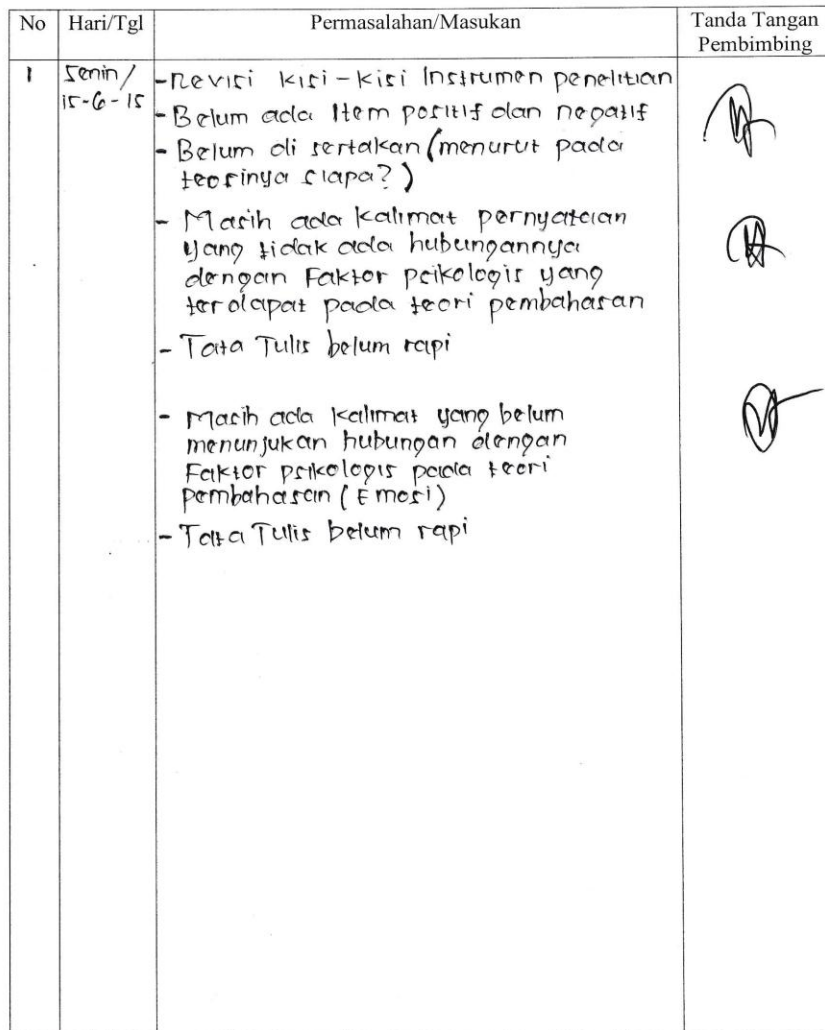 No Hari/Tgl Permasalahan/Masukan Tanda Tangan
Pembimbing
1 Senin/ -Revisi kisi-kisi Instrumen penelitian
15-6-15 - Belum ada Item positif dan negatif
- Belum di sertakan (menurut pada
teorinya siapa?)
- Masih ada kalimat pernyataan
yang tidak ada hubungannya
dengan Faktor psikologis yang
terdapat pada teori pembahasan
- Tata Tulis belum rapi
- Masih ada kalimat yang belum
menunjukan hubungan dengan
Faktor psikologis pada teori
pembahasan (Emosi)
- Tata Tulis belum rapi